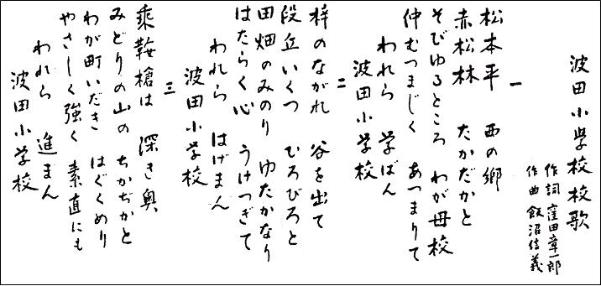 波田小学校校歌
作詞 窪田章一郎
作曲 飯沼信義
一
松本平 西の郷
赤松林 たかだかと
そびゆるところ わが母校
仲むつまじく あつまりて
われら 学ばん
波田小学校
二
梓のながれ 谷を出て
段丘いくつ ひろびろと
田畑のみのり ゆたかなり
はたらく心 うけつぎて
われら はげまん
波田小学校
三
乗鞍槍は 深き奥
みどりの山の ちかぢかと
わが町いだき はぐくめり
やさしく強く 素直にも
われら 進まん
波田小学校